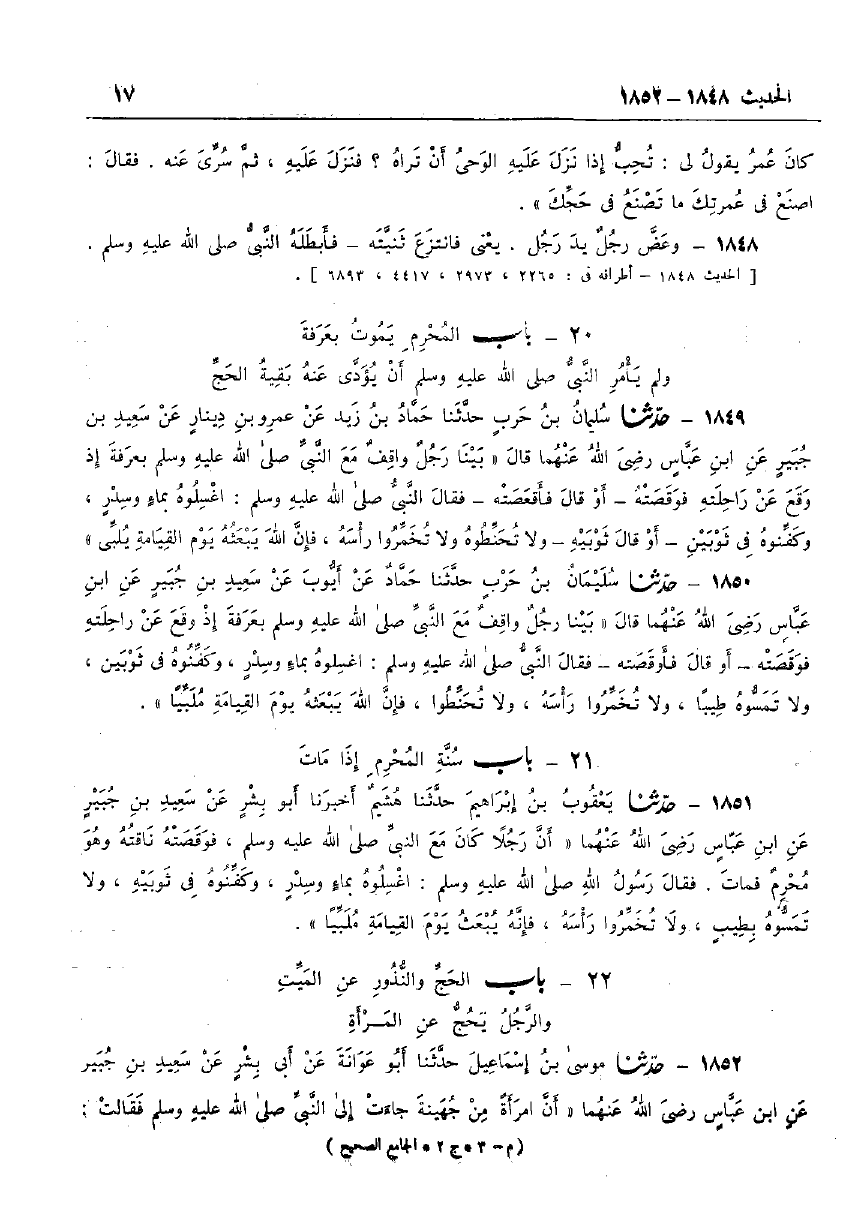 الحديث ١٨٤٨ – ١٨٥٢ ١٧
كانَ عُمرُ يقولُ لى : تُحِبُّ إذا نَزَلَ عَلَيهِ الوَحىُ أَنْ تَراهُ ؟ فنَزَلَ عَلَيهِ ، ثمَّ سُرِّىَ عَنه . فقالَ :
اصنَعْ فى عُمرتِكَ ما تَصْنَعُ فى حَجِّكَ » .
١٨٤٨ – وعَضَّ رجُلٌ يدَ رَجُل . يعْنى فانتزَعَ ثَنيَّتَه – فأَبطَلَهُ النَّبىُّ صلى الله عليهِ وسلم .
[ الحديث ١٨٤٨ – أطرافه فى : ٢٢٦٥ ، ٢٩٧٣ ، ٤٤١٧ ، ٦٨٩٣ ] .
٢٠ – باب المُحْرِمِ يَموتُ بعَرَفةَ
ولم يَأْمُرِ النَّبىُّ صلى الله عليهِ وسلم أَنْ يُؤدَّى عَنهُ بَقيةُ الحَجِّ
١٨٤٩ – حدّثنا سُليمانُ بنُ حَربٍ حدَّثَنا حَمَّادُ بنُ زَيد عَنْ عمرِو بنِ دِينارٍ عَنْ سَعِيدِ بن
جُبَيرٍ عَنِ ابنِ عَبَّاسٍ رضِىَ اللهُ عَنْهُما قالَ « بَيْنَا رَجُلٌ واقِفٌ مَعَ النَّبىِّ صلىٰ الله عليهِ وسلم بعرفةَ إذ
وَقَعَ عَنْ رَاحِلَتهِ فوَقَصَتْهُ – أَوْ قالَ فأَقعَصَتْه – فقالَ النَّبىُّ صلىٰ الله عليهِ وسلم : اغْسِلُوهُ بماءٍ وسِدْرٍ ،
وكَفِّنوهُ فى ثَوْبَيْنِ – أَوْ قال ثَوْبَيْهِ – ولا تُحَنِّطُوهُ ولا تُخَمِّرُوا رأْسَهُ ، فإنَّ اللهَ يَبْعَثُهُ يَوْم القِيامَةِ يُلبِّى »
١٨٥٠ – حدّثنا سُلَيْمَانُ بنُ حَرْبٍ حدَّثَنا حَمَّادٌ عَنْ أَيُّوبَ عَنْ سَعِيدِ بنِ جُبَيرٍ عَنِ ابنِ
عَبَّاسٍ رَضِىَ اللهُ عَنْهُما قالَ « بَيْنا رجُلٌ واقِفٌ مَعَ النَّبىِّ صلىٰ الله عليهِ وسلم بعَرَفةَ إذْ وقَعَ عَنْ راحِلَتهِ
فوَقَصَتْه – أَو قالَ فأَوقَصَته – فقالَ النَّبىُّ صلىٰ الله عليهِ وسلم : اغسِلوهُ بماءٍ وسِدْرٍ ، وكَفِّنُوهُ فى ثَوْبَين ،
ولا تَمَسُّوهُ طِيبًا ، ولا تُخَمِّرُوا رَأْسَهُ ، ولا تُحَنِّطُوا ، فإنَّ اللهَ يَبْعَثهُ يومَ القيامةِ مُلَبِّيًا » .
٢١ – باب سُنَّةِ المُحْرِمِ إذَا مَاتَ
١٨٥١ – حدّثنا يَعْقُوبُ بنُ إبْرَاهيمَ حدَّثَنا هُشَيمٌ أخبرَنا أبو بِشْرٍ عَنْ سَعِيدِ بنِ جُبَيْرٍ
عَنِ ابنِ عَبّاسٍ رَضِىَ اللهُ عَنْهُما « أَنَّ رَجُلًا كَانَ مَعَ النبىِّ صلىٰ الله عليهِ وسلم ، فوَقَصَتْهُ نَاقتُهُ وهُوَ
مُحْرِمٌ فماتَ . فقالَ رَسُولُ اللهِ صلىٰ الله عليهِ وسلم : اغْسِلُوهُ بماءٍ وسِدْرٍ ، وكَفِّنُوهُ فِى ثَوبَيْهِ ، ولا
تَمَسُّوهُ بِطِيبٍ ، ولَا تُخَمِّرُوا رَأْسَهُ ، فإنَّهُ يُبْعَثُ يَوْمَ القيامَةِ مُلَبِّيًا » .
٢٢ – باب الحَجِّ والنُّذُورِ عنِ المَيِّتِ
والرَّجُلُ يَحُجُّ عنِ المَرْأَةِ
١٨٥٢ – حدّثنا موسىٰ بنُ إسْماعِيلَ حدَّثَنا أَبُو عَوَانَةَ عَنْ أَبى بِشْرٍ عَنْ سَعيدِ بنِ جُبَيرٍ
عَنِ ابنِ عَبَّاسٍ رضىَ اللهُ عَنْهُما « أَنَّ امرَأَةً مِنْ جُهَينةَ جاءَتْ إلىٰ النَّبىِّ صلىٰ اللهُ عليهِ وسلم فقَالتْ :
(م – ٣ • ج ٢ • الجامع الصحيح )